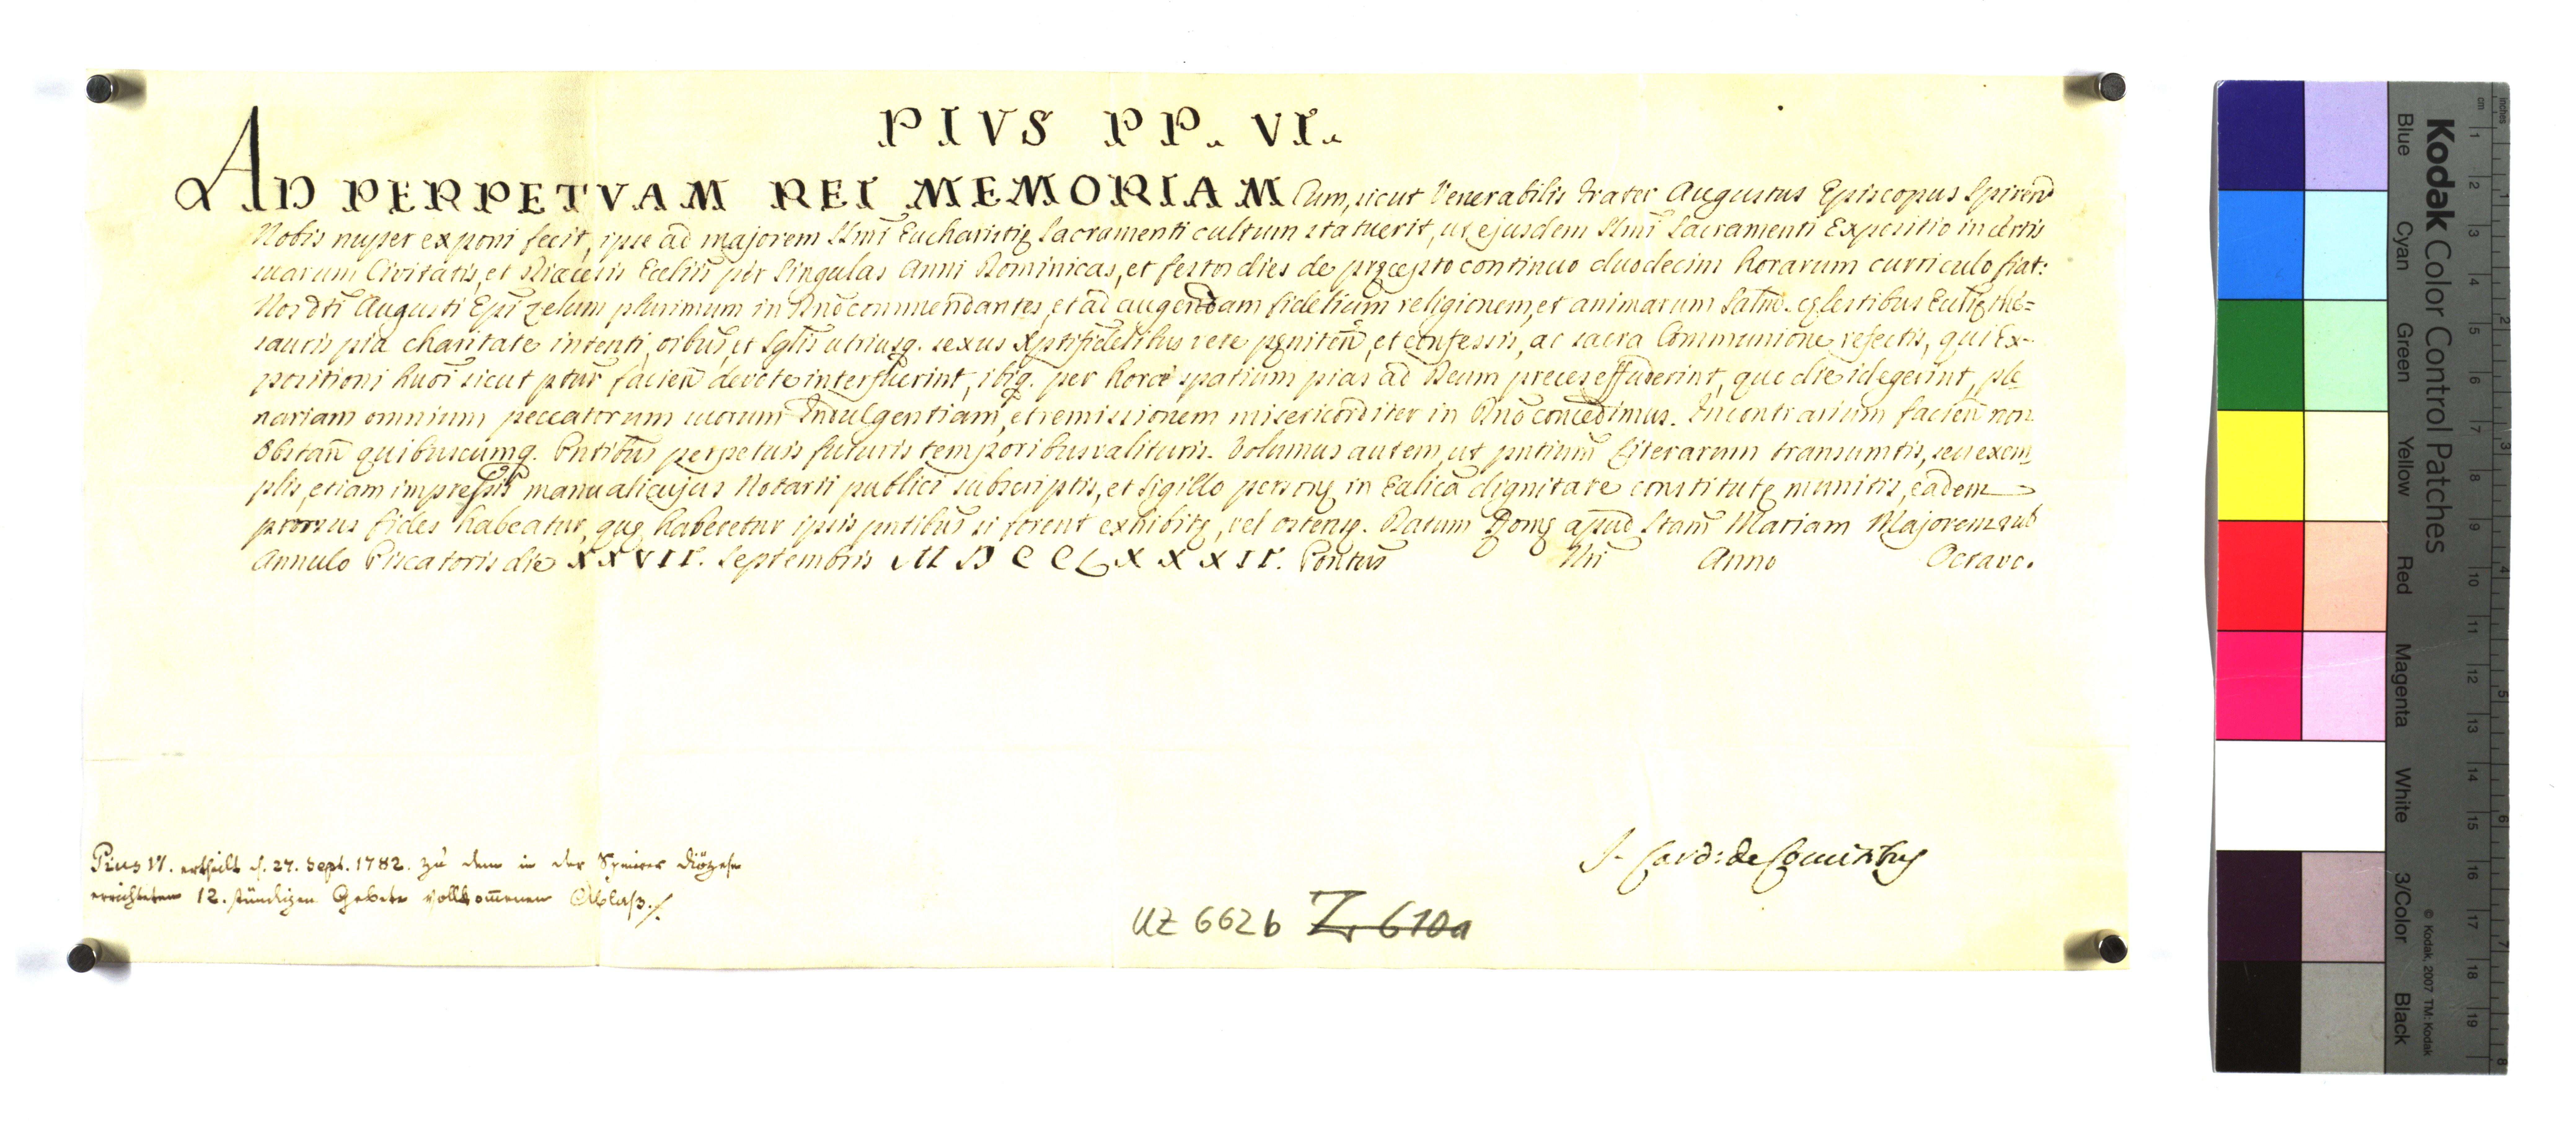 PIVS PP. VI.
AD PERPETVAM REI MEMORIAM Cum, sicut Venerabilis Frater Augustus Episcopus Spireñ
Nobis nuper exponi fecit, ipse ad majorem Ssmi Eucharistię Sacramenti cultum statuerit, ut ejusdem Ssmi Sacramenti Expositio in
suarum Civitatis, et Diœcesis Ecclìis per singulas Anni Dominicas, et festos dies de pręcepto continuo duodecim horarum curriculo fiat:
Nos dti Augusti Epi zelum plurimum in Dno commendantes, et ad augendam fidelium religionem, et animarum salut. cęlestibus Ecclię the=
sauris pia charitate intenti, oibus, et sglis utriusq. sexus Xptifidelibus vere pęniteñ, et confessis, ac sacra Communione refectis, qui Ex-
positioni huoi sicut ptur facień devote interfuerint, ibiq. per horæ spatium pias ad Deum preces effuderint, quo die id egerint, ple
nariam omnium peccatorum suorum Indulgentiam, et remissionem misericorditer in Dno concedimus. In contrarium facień non
obstań quibuscumq. Pntibus perpetuis futuris temporibus valituris. Volumus autem, ut pntium Literarum transumtis, seu exem
plis, etiam impressis manu alicujus Notarii publici subscriptis, et sigillo personę in Ecclica dignitate constitutę munitis, eadem
prorsus fides habeatur, quę haberetur ipsis pntibus si forent exhibitę, vel ostensę. Datum Romę apud Stam Mariam Majorem sub
Annulo Piscatoris die XXVII. Septembris MDCCLXXXII. Pontus Nri Anno Octavo.
J. Card: de Comitibus
Pius VI. ertheilt d. 27. Sept. 1782. zu dem in der Speirer Diözese
errichteten 12. stündigen Gebete vollkom̅enen Ablaß.
UZ 662b Z. 610a
Kodak Color Control Patches
Blue Cyan Green Yellow Red Magenta White 3/Color Black
© Kodak, 2007 TM: Kodak
cm 1 2 3 4 5 6 7 8 9 10 11 12 13 14 15 16 17 18 19
inches 1 2 3 4 5 6 7 8